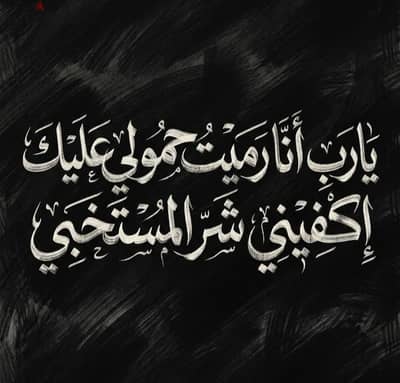 يَارَبِ أَنَّا رَمَيْتُ حُمُولي عَلَيْكَ
إِكْفِيْنِي شَرّ المُسْتَخبِي